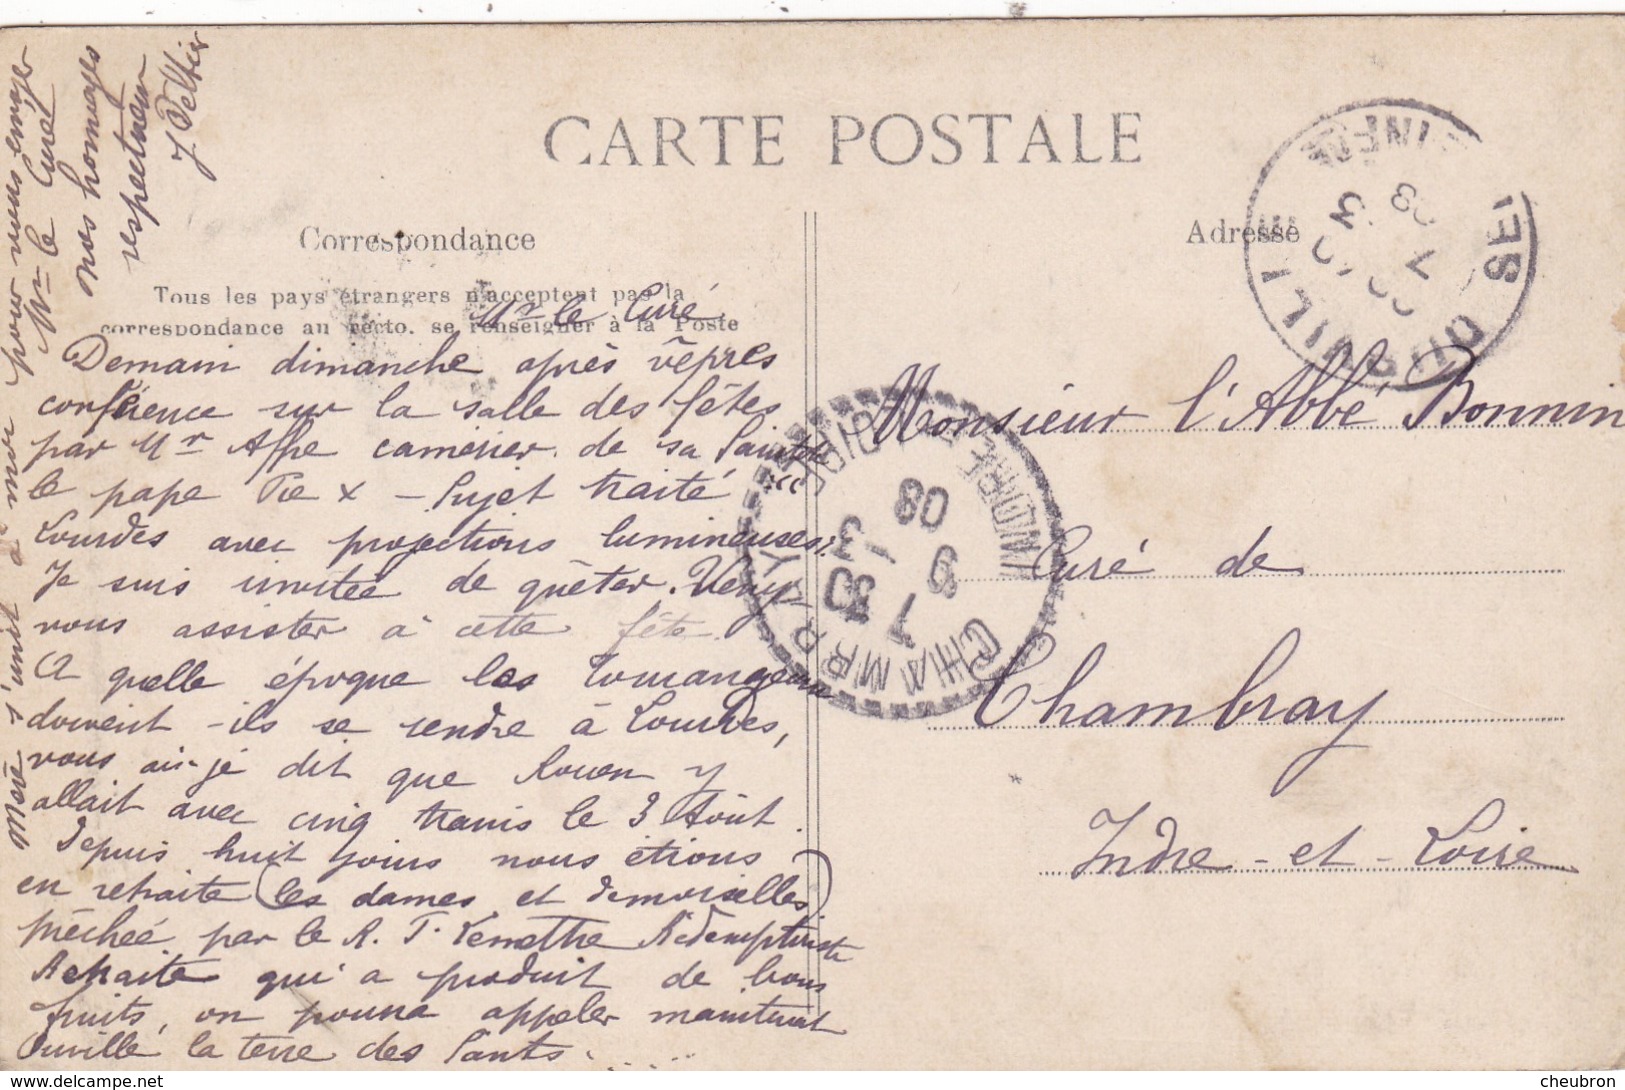 CARTE POSTALE
Correspondance
Adresse
Tous les pays étrangers n'acceptent pas la
correspondance au recto. se renseigner à la Poste
Mr le Curé
Demain dimanche après vêpres
conférence sur la salle des fêtes
par Mr Affre camérier de sa Sainteté
le pape Pie X – Sujet traité
Lourdes avec projections lumineuses.
Je suis invitée de quêter. Venez
vous assister à cette fête
A quelle époque les tourangeaux
doivent-ils se rendre à Lourdes,
vous ai-je dit que Rouen y
allait avec cinq trains le 3 Août.
Depuis huit jours nous étions
en retraite (les dames et demoiselles)
prêchée par le R. P. Rédemptoriste
Retraite qui a produit de bons
fruits, on pourra appeler maintenant
Ouville la terre des Saints. . . .
s'unit à moi pour vous envoyer
Mr le Curé
nos homages
respectueux
J Peltier
Monsieur l'Abbé Bonnin
Curé de
Chambray
Indre-et-Loire
CHAMBRAY
INDRE
7 30
9 -3
08
7
3
08
cheubron - www.delcampe.net